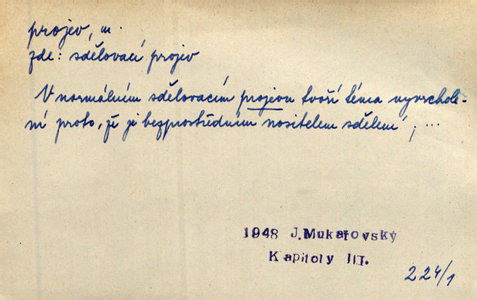 projev, m.
zde: sdělovací projev
V normálním sdělovacím projevu tvoří téma vyvrchole-
ní proto, že je bezprostředním nositelem sdělení; ...
1948 J. Mukařovský
Kapitoly III.
224/1